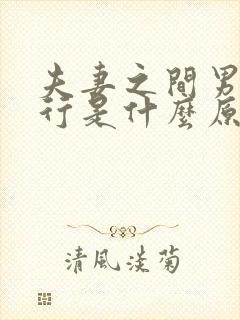 夫妻之間男
行是什麼原
清風淡菊